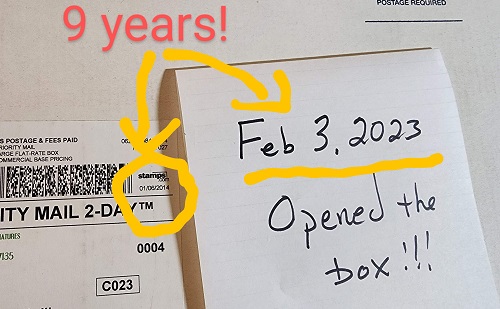 9 years!
POSTAGE REQUIRED
Feb 3, 2023
Opened the
box!!!
S POSTAGE & FEES PAID
RIORITY MAIL
ARGE FLAT-RATE BOX
OMMERCIAL BASE PRICING
stamps
.com
01/06/2014
ITY MAIL 2-DAY™
ATURES
7135
0004
C023